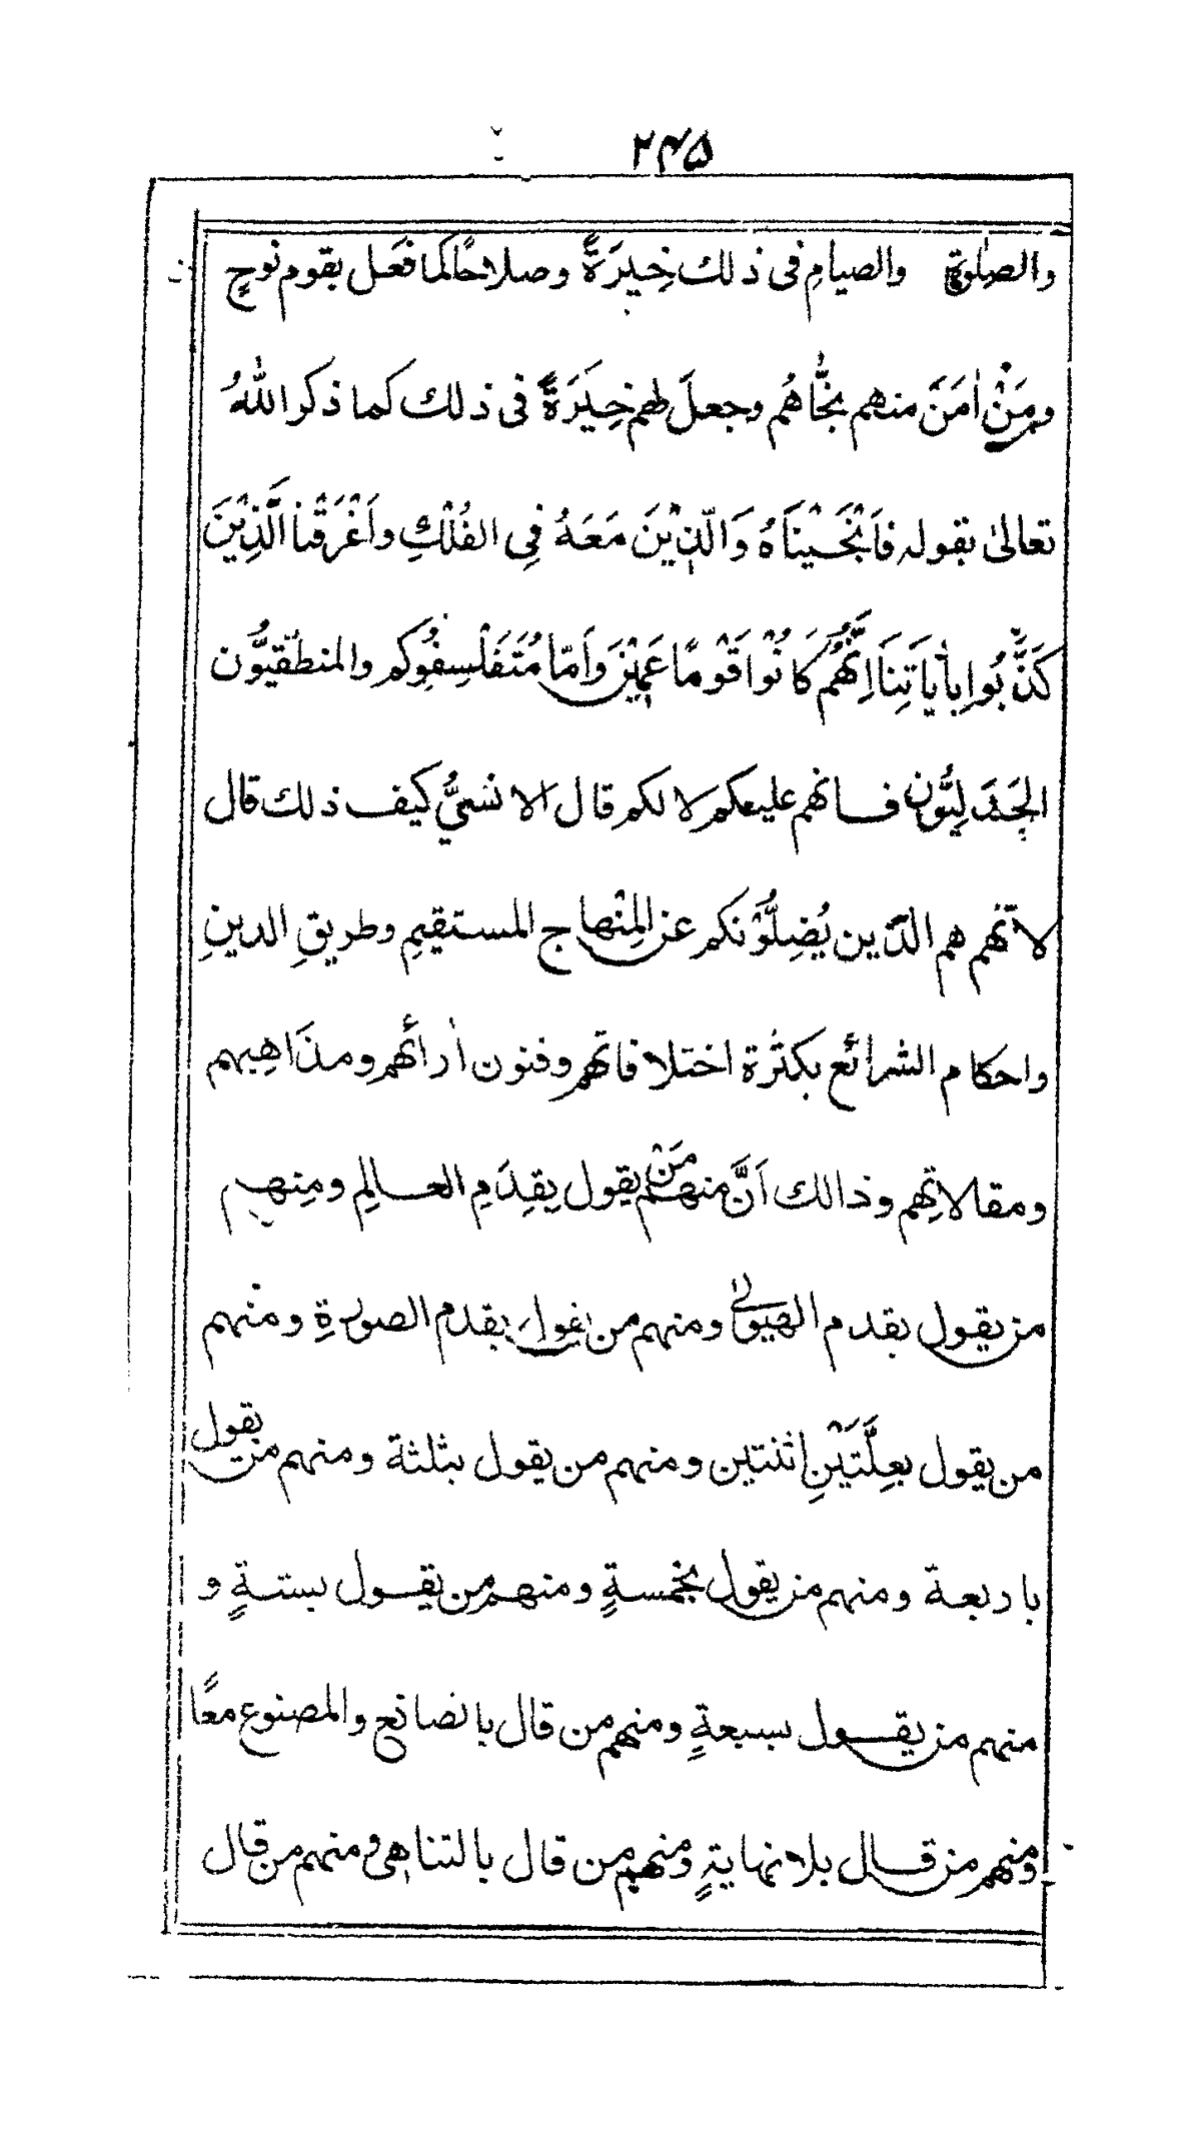 ۲۴۵
والصلوة والصيامِ فى ذلك خِيرَةً وصلاحًا كما فَعَل بقوم نوحٍ
ومَنْ اٰمَنَ منهم نجّاهُم وجعلَ لهم خِيَرَةً فى ذلك كما ذكر اللهُ
تعالىٰ بقوله فَاَنْجَيْنَاهُ وَالَّذِيْنَ مَعَهُ فِى الفُلْكِ واَغْرَقْنا الَّذِيْنَ
كَذَّبُوا بِاٰيَاتِنَا اِنَّهُمْ كَانُوْا قَوْمًا عَمِيْنَ واَمّا مُتَفَلْسِفُوكم والمنطقيُّون
الجَدَلِيُّون فانهم عليكم لا لكم قال الانسىُّ كيف ذلك قال
لانّهم هم الذين يُضِلُّوْنكم عن المِنْهاج المستقيمِ وطريقِ الدينِ
واحكام الشرائع بكثرة اختلافاتهم وفنون اٰرائهم ومذاهِبهم
ومقالاتِهم وذالك اَنَّ منهم مَنْ يقول بِقِدَمِ العالمِ ومِنهم
من يقول بقدم الهيولىٰ ومنهم من يقول بقدم الصورةِ ومنهم
من يقول بعِلَّتَيْنِ اثنتين ومنهم من يقول بثلثة ومنهم من يقول
باربعة ومنهم من يقول بخمسةٍ ومنهم من يقول بستةٍ و
منهم من يقول بسبعةٍ ومنهم من قال بالصانع والمصنوع معًا
ومنهم من قال بلا نهايةٍ ومنهم من قال بالتناهى ومنهم من قال